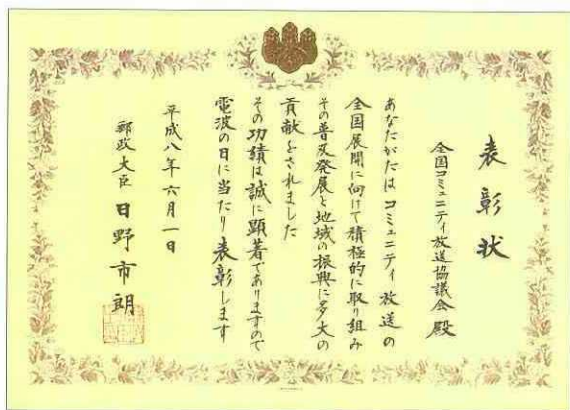 表彰状
全国コミュニティ放送協議会 殿
あなたがたはコミュニティ放送の
全国展開に向けて積極的に取り組み
その普及発展と地域の振興に多大の
貢献をされました
その功績は誠に顕著でありますので
電波の日に当たり表彰します
平成八年六月一日
郵政大臣 日野市朗